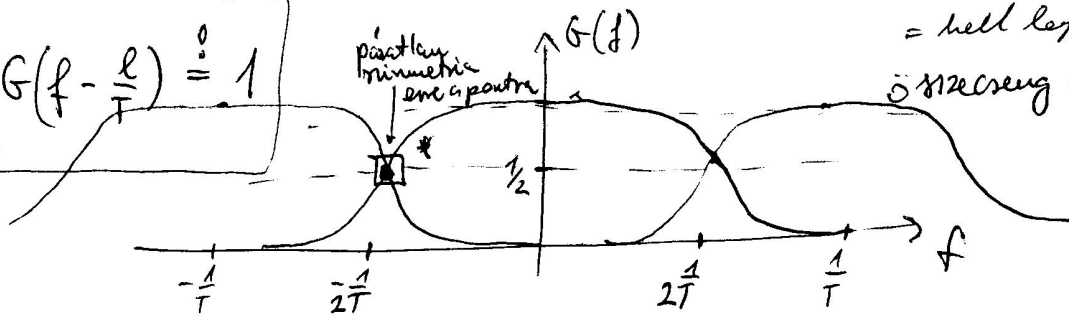 G(f - l/T) ≟ 1
páratlan
szimmetria
erre a pontra
*
G(f)
= kell
összecseng
1/2
f
-1/T
-1/2T
1/2T
1/T